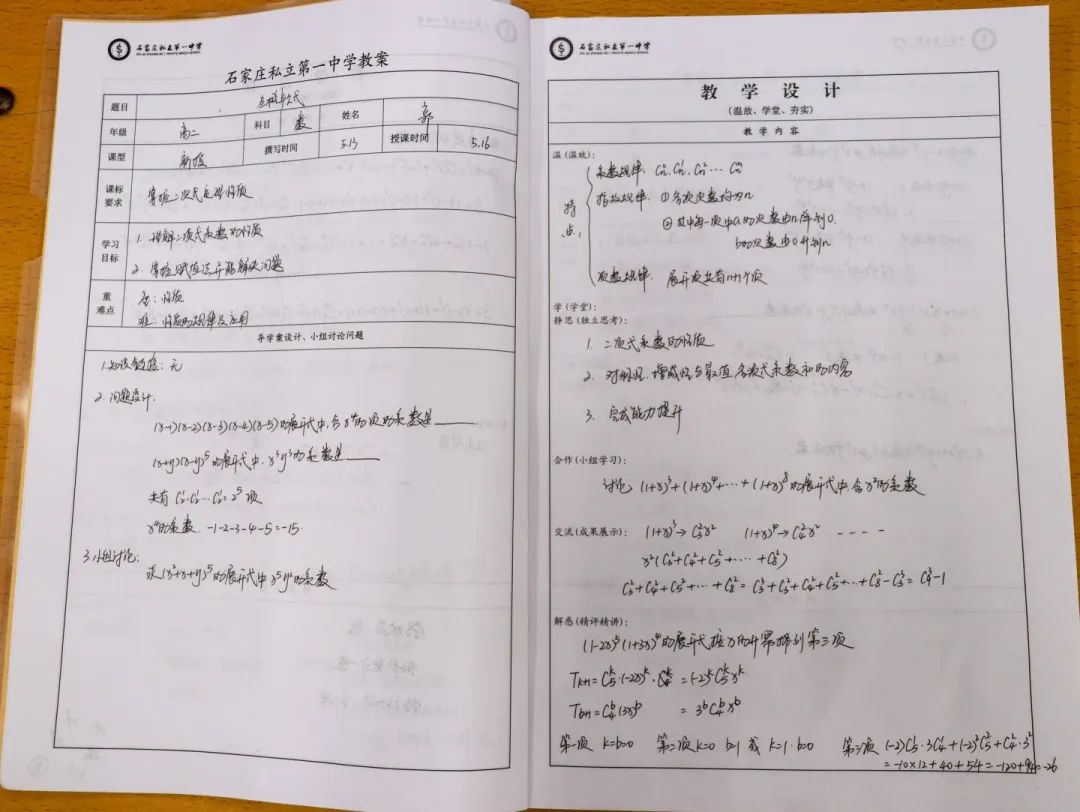 石家庄私立第一中学
石家庄私立第一中学教案
题目
年级 高二 科目 数 姓名 郭
课型 新授 撰写时间 5.13 授课时间 5.16
课标要求 掌握二项式定理性质
学习目标 1. 理解二项式系数的性质
2. 掌握赋值法并能解决问题
重难点 重:性质
难:性质的规律及应用
导学案设计、小组讨论问题
1.知识链接:无
2.问题设计:
(x-1)(x-2)(x-3)(x-4)(x-5)的展开式中,含x⁴的项的系数是____
(x+y)(x-y)⁵的展开式中,x³y³的系数是____
共有 C₂¹·C₂¹…C₂¹=2⁵项
x⁴的系数 -1-2-3-4-5=-15
3.小组讨论:
求(x²+x+y)⁵的展开式中x⁵y²的系数
石家庄私立第一中学
教学设计
(温故、学堂、夯实)
教学内容
温(温故):
特点:
系数规律: Cₙ⁰, Cₙ¹, Cₙ²…Cₙⁿ
指数规律: ①各项次数均为n
②其中每一项中a的次数由n降到0.
b的次数由0升到n
项数规律: 展开项共有n+1个项
学(学堂):
静思(独立思考):
1. 二项式系数的性质
2. 对称性、增减性与最值,各项式系数和的内容
3. 完成能力提升
合作(小组学习):
讨论 (1+x)³+(1+x)⁴+…+(1+x)⁸的展开式中,含x²的系数
交流(成果展示): (1+x)³→C₃²x² (1+x)⁴→C₄²x² ----
x²(C₃²+C₄²+C₅²+…+C₈²)
C₃²+C₄²+C₅²+…+C₈²=C₃³+C₃²+C₄²+C₅²+…+C₈²-C₃³=C₉³-1
解惑(精评精讲):
(1-2x)⁵(1+3x)⁴的展开式,按x的升幂排列第三项
Tk+1=C₅ᵏ·(-2x)ᵏ =(-2)ᵏC₅ᵏxᵏ
Tb+1=C₄ᵇ(3x)ᵇ =3ᵇC₄ᵇxᵇ
第一项 k=b=0 第二项k=0 b=1 或 k=1·b=0 第三项 (-2)C₅¹·3C₄¹+(-2)²C₅²+C₄²·3²
=-10×12+40+54=-120+94=-26